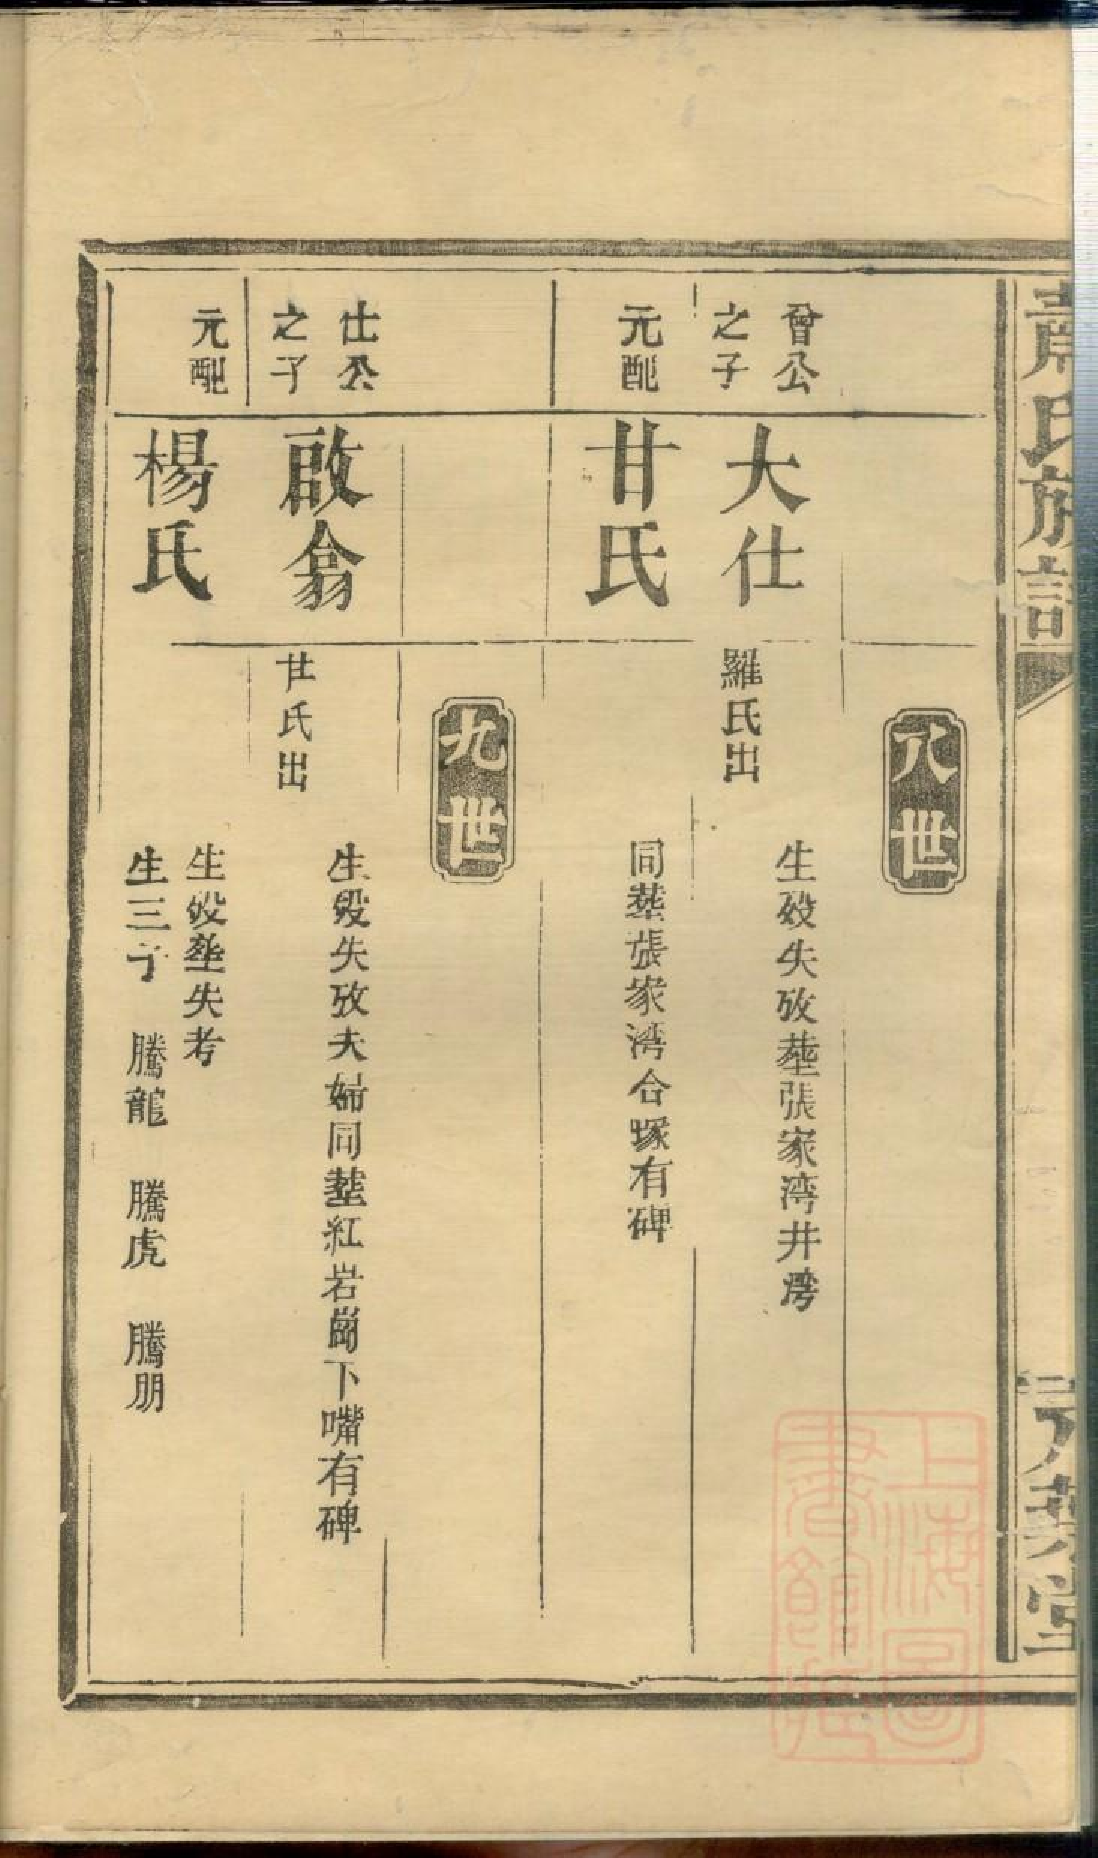 蕭氏族譜
八葉堂
八世
曾公
之子
大仕
羅氏出
生歿失攷塟張家湾井塆
元配
甘氏
同塟張家湾合塚有碑
九世
仕公
之子
啟翕
甘氏出
生歿失攷夫婦同塟紅岩崗下嘴有碑
元配
楊氏
生歿塟失考
生三子 騰龍 騰虎 騰朋
上海圖
書館藏